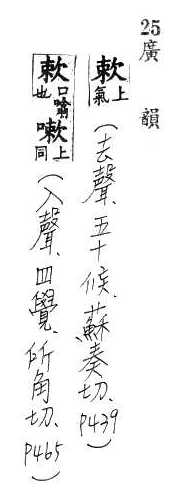 25廣韻
欶上氣(去聲、五十候、蘇奏切、P439)
欶口噏也嗽上同(入聲、四覺、所角切、P465)